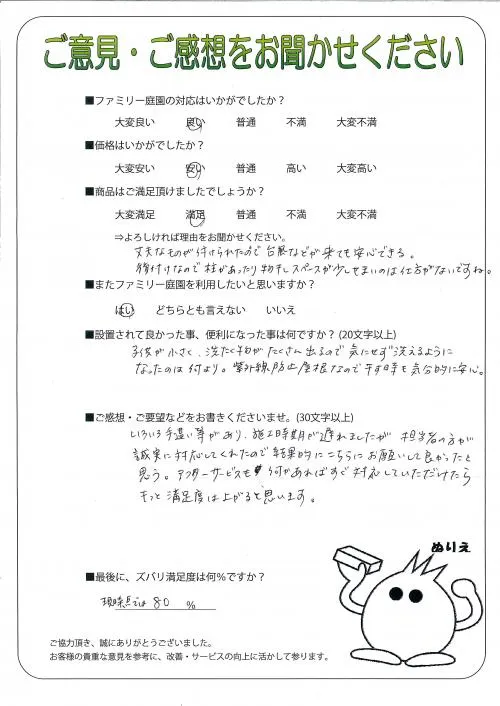 ご意見・ご感想をお聞かせください
■ファミリー庭園の対応はいかがでしたか？
大変良い 良い 普通 不満 大変不満
■価格はいかがでしたか？
大変安い 安い 普通 高い 大変高い
■商品はご満足頂けましたでしょうか？
大変満足 満足 普通 不満 大変不満
⇒よろしければ理由をお聞かせください。
丈夫なものが付けられたので台風などが来ても安心できる。
後付けなので柱があったり物干しスペースが少しせまいのは仕方がないですね。
■またファミリー庭園を利用したいと思いますか？
はい どちらとも言えない いいえ
■設置されて良かった事、便利になった事は何ですか？(20文字以上)
子供が小さく、洗たく物がたくさん出るので気にせず洗えるように
なったのは何より。紫外線防止屋根なので干す時も気分的に安心。
■ご感想・ご要望などをお書きくださいませ。(30文字以上)
いろいろ手違い等があり、施工時期が遅れましたが担当者の方が
誠実に対応してくれたので結果的にこちらにお願いして良かったと
思う。アフターサービスも何かあればすぐ対応していただけたら
もっと満足度は上がると思います。
ぬりえ
■最後に、ズバリ満足度は何％ですか？
現時点では 80 ％
ご協力頂き、誠にありがとうございました。
お客様の貴重な意見を参考に、改善・サービスの向上に活かして参ります。